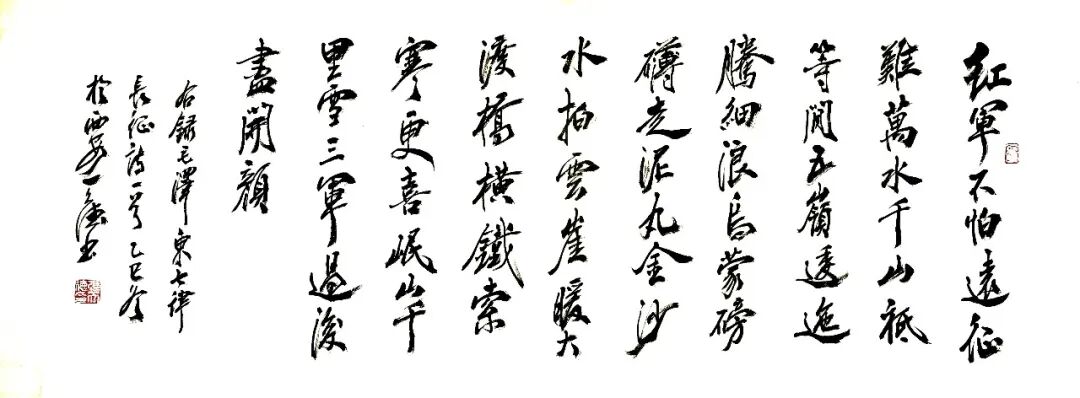 紅軍不怕遠征
難萬水千山祗
等閒五嶺逶迤
騰細浪烏蒙磅
礴走泥丸金沙
水拍雲崖暖大
渡橋橫鐵索
寒更喜岷山千
里雪三軍過後
盡開顏
右錄毛澤東七律
長征詩一首乙巳冬
於西安一書